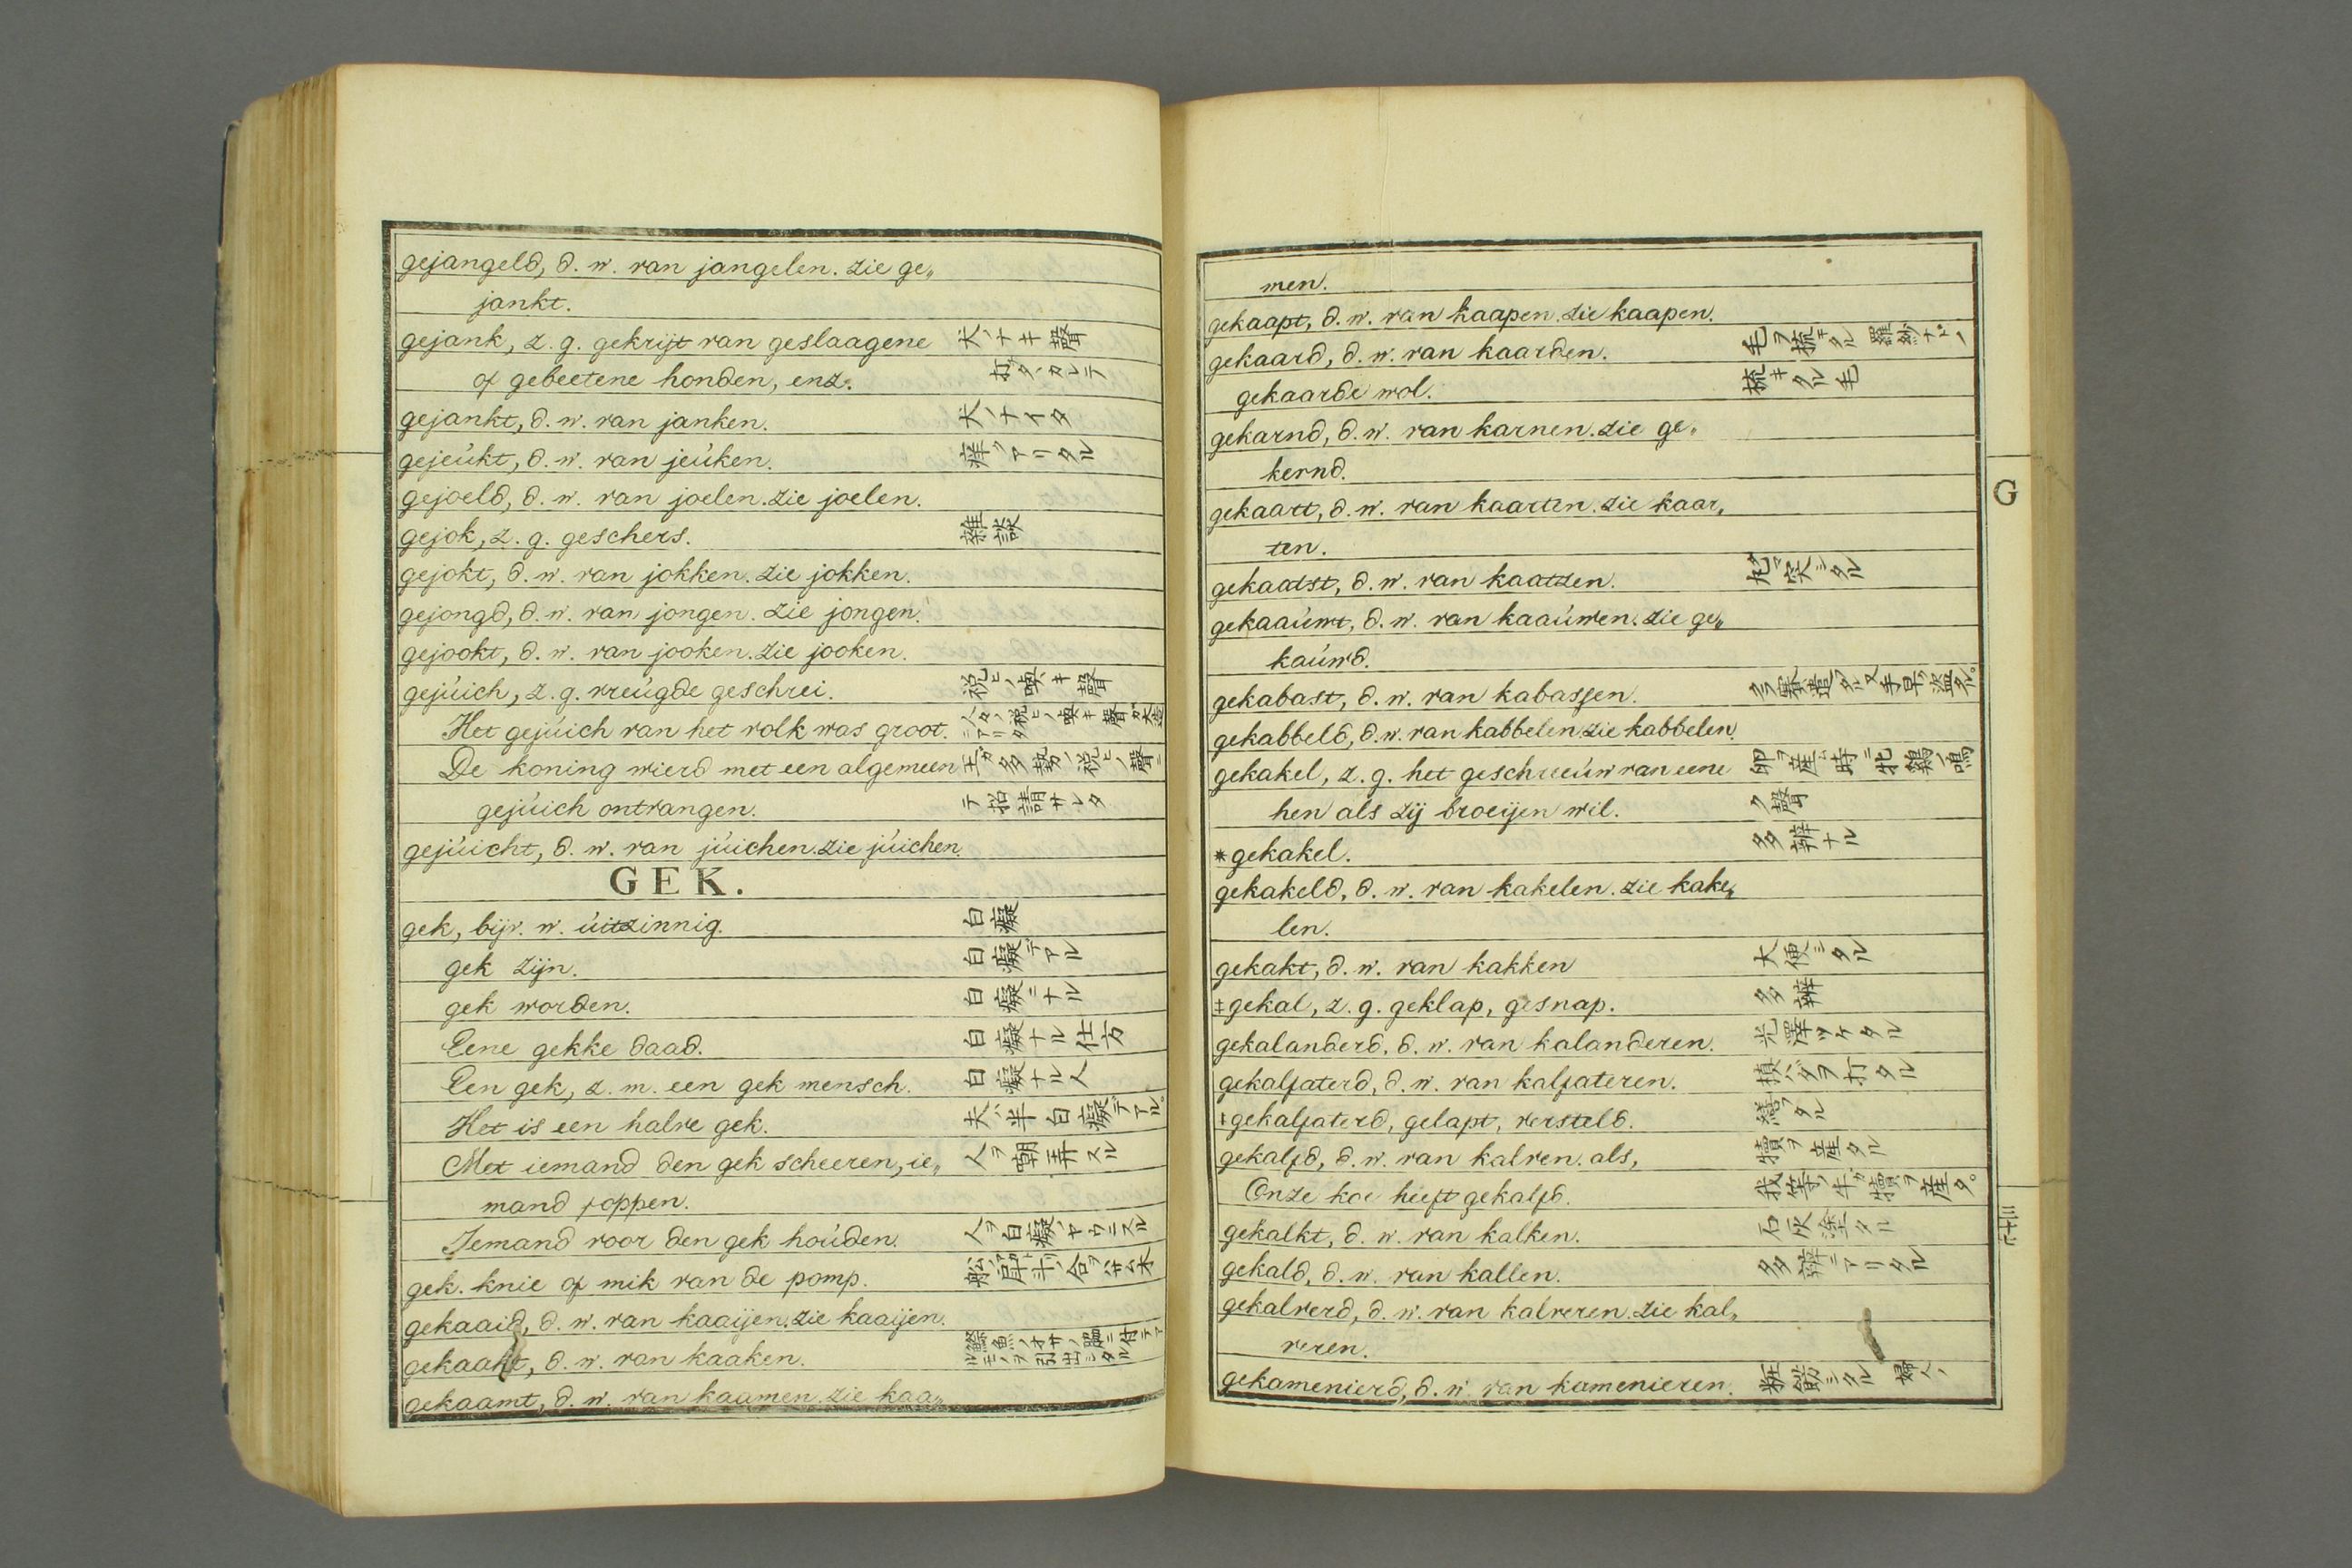 gejangeld, d. w. van jangelen. zie ge„
jankt.
gejank, z. g. gekrijt van geslaagene 犬ノナキ聲
of gebeetene honden, enz. 打タヽカレテ
gejankt, d. w. van janken. 犬ノナイタ
gejeúkt, d. w. van jeúken. 痒クアリタル
gejoeld, d. w. van joelen. zie joelen.
gejok, z. g. geschers. 雑談
gejokt, d. w. van jokken. zie jokken.
gejongd, d. w. van jongen. zie jongen.
gejookt, d. w. van jooken. zie jooken.
gejúich, z. g. vreúgde geschrei. 祝ヒノ喚キ聲
Het gejúich van het volk was groot. 人々ノ祝ヒノ喚キ聲ガ大造ニアリタ
De koning wierd met een algemeen 王ガ多勢ノ祝ヒノ聲ニ
gejúich ontvangen. テ招請サレタ
gejúicht, d. w. van júichen. zie júichen.
GEK.
gek, bijv. w. úitzinnig. 白癡
gek zijn. 白癡デアル
gek worden. 白癡ニナル
Eene gekke daad. 白癡ナル仕方
Een gek, z. m. een gek mensch. 白癡ナル人
Het is een halve gek. 夫ハ半白癡デアル。
Met iemand den gek scheeren, ie„ 人ヲ嘲弄スル
mand foppen.
Iemand voor den gek hoúden. 人ヲ白癡ノヤウニスル
gek. knie of mik van de pomp.
gekaaid, d. w. van kaaijen. zie kaaijen.
gekaakt, d. w. van kaaken.
gekaamt, d. w. van kaamen. zie kaa„
men.
gekaapt, d. w. van kaapen. zie kaapen.
gekaard, d. w. van kaarden. 毛ヲ梳キタル 羅紗ナドノ
gekaarde wol. 梳キタル毛
gekarnd, d. w. van karnen. zie ge„
kernd.
gekaart, d. w. van kaarten. zie kaar„
ten.
gekaatst, d. w. van kaatzen. 突シタル
gekaaúwt, d. w. van kaaúwen. zie ge„
kaúwd.
gekabast, d. w. van kabassen.
gekabbeld, d. w. van kabbelen zie kabbelen.
gekakel, z. g. het geschreeúw van eene 卵ヲ産ム時ニ牝鶏ノ鳴
hen als zij broeijen wil. ク聲
*gekakel. 多辨ナル
gekakeld, d. w. van kakelen. zie kake„
len.
gekakt, d. w. van kakken 大便シタル
‡gekal, z. g. geklap, gesnap. 多辨
gekalanderd. d. w. van kalanderen. 光澤ツケタル
gekalfaterd, d. w. van kalfateren. 槙ハダヲ打タル
‡gekalfaterd, gelapt, versteld. 繕フタル
gekalfd, d. w. van kalven. als, 犢ヲ産タル
Onze koe heeft gekalfd. 我等ノ牛ガ犢ヲ産タ。
gekalkt, d. w. van kalken. 石灰塗タル
gekald, d. w. van kallen. 多辨ニアリタル
gekalverd, d. w. van kalveren. zie kal„
veren.
gekamenierd, d. w. van kamenieren. 粧飾シタル 婦人ノ
G